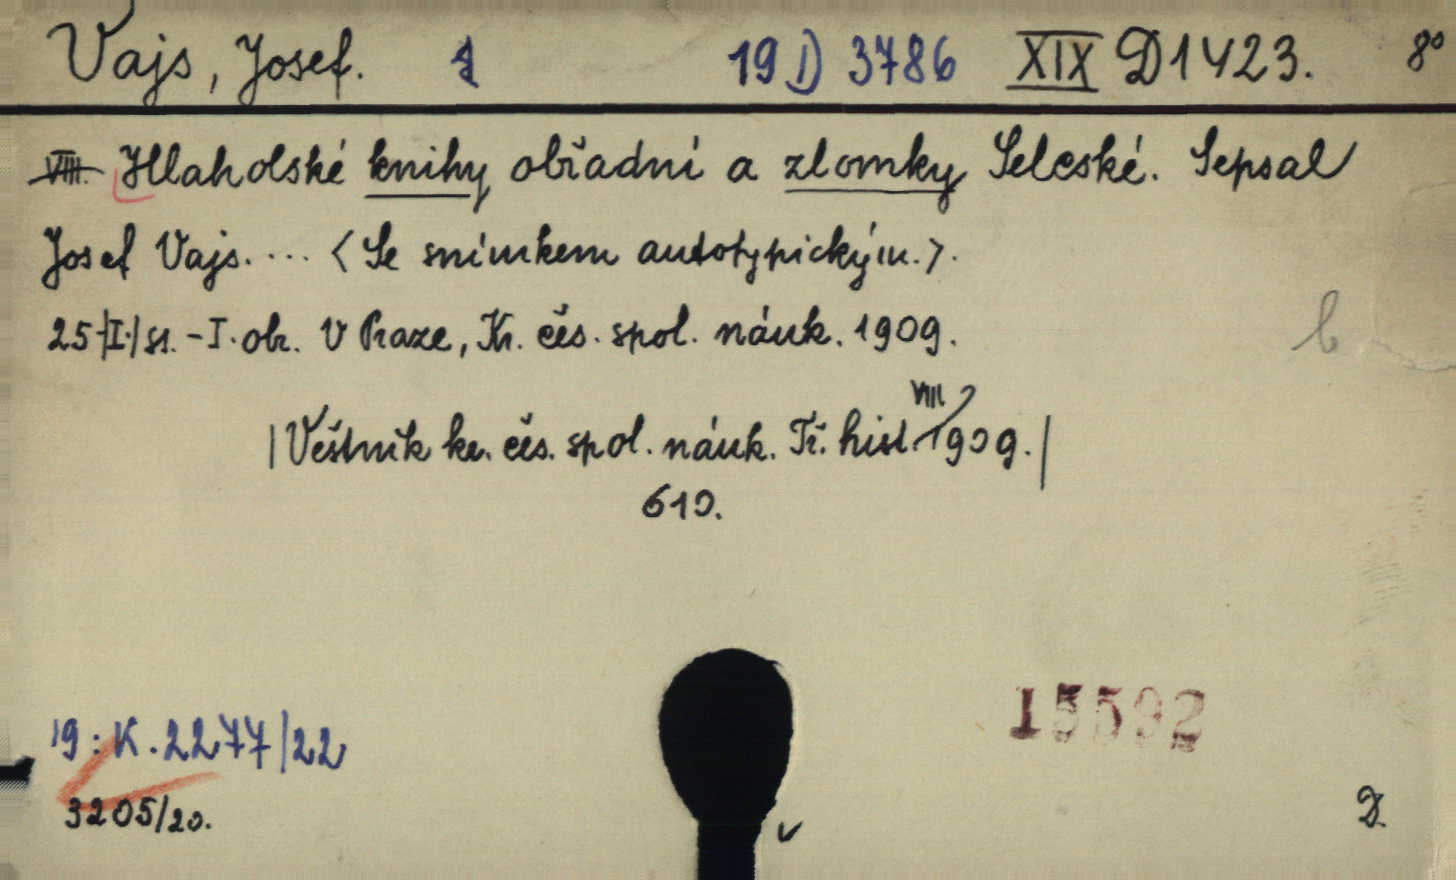 Vajs, Josef. 19 D 3786 XIX D 1423. 8°
VIII. Hlaholské knihy obřadní a zlomky Selcské. Sepsal
Josef Vajs. ... <Se snímkem autotypickým.>.
25 |I.| st. - I. obr. V Praze, Kr. čes. spol. náuk. 1909.
b
VIII
|Věstník kr. čes. spol. náuk. Tř. hist. 1909.|
610.
15592
19: K. 2277/22
3205/20.
D.